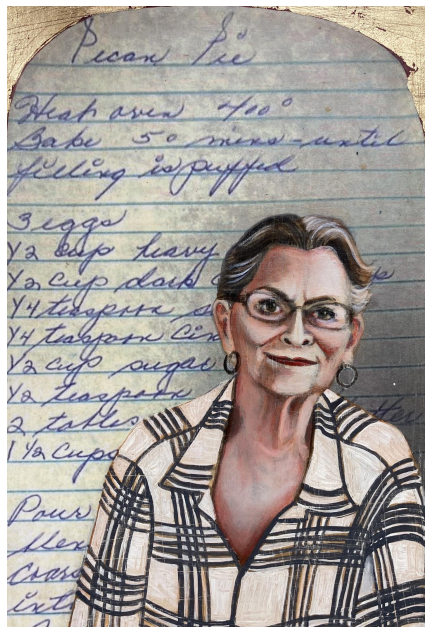 Pecan Pie
Heat oven 400°
Bake 50 mins - until
filling is puffed
3 eggs
1/2 cup heavy
1/2 cup dark
1/4 teaspoon s
1/4 teaspoon Cin
1/2 cup sugar
1/2 teaspoon
2 tables
1 1/2 Cups
Pour